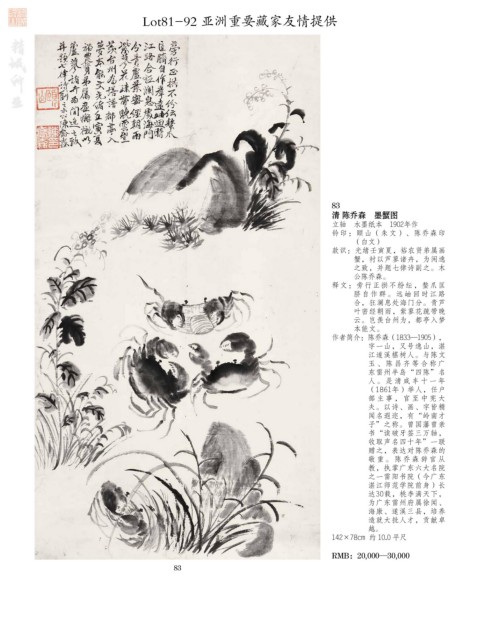 Lot81-92 亚洲重要藏家友情提供
精诚所至
83
清 陈乔森 墨蟹图
立轴 水墨纸本 1902年作
钤印：颐山（朱文）、陈乔森印
（白文）
款识：光绪壬寅夏，裕农贤弟属画
蟹，村以芦蓼诸卉，为闲逸
之致，并题七律诗副之。木
公陈乔森。
释文：旁行正拱不纷纭，整爪匡
脐自作群。远岫回时江路
合，狂澜息处海门分。青芦
叶密经朝雨，紫蓼花疏带晚
云。岂是台州为，都亭入梦
本能文。
作者简介：陈乔森（1833—1905），
字一山，又号逸山，湛
江遂溪椹树人。与陈文
玉、陈昌齐等合称广
东雷州半岛“四陈”名
人。是清咸丰十一年
（1861年）举人，任户
部主事，官至中宪大
夫。以诗、画、字皆精
闻名遐迩，有“岭南才
子”之称。曾国藩曾亲
书“读破牙签三万轴，
收取声名四十年”一联
赠之，表达对陈乔森的
敬重。陈乔森辞官从
教，执掌广东六大名院
之一雷阳书院（今广东
湛江师范学院前身）长
达30载，桃李满天下。
为广东雷州府属徐闻、
海康、遂溪三县，培养
造就大批人才，贡献卓
越。
142×78cm 约 10.0 平尺
RMB: 20,000—30,000
83